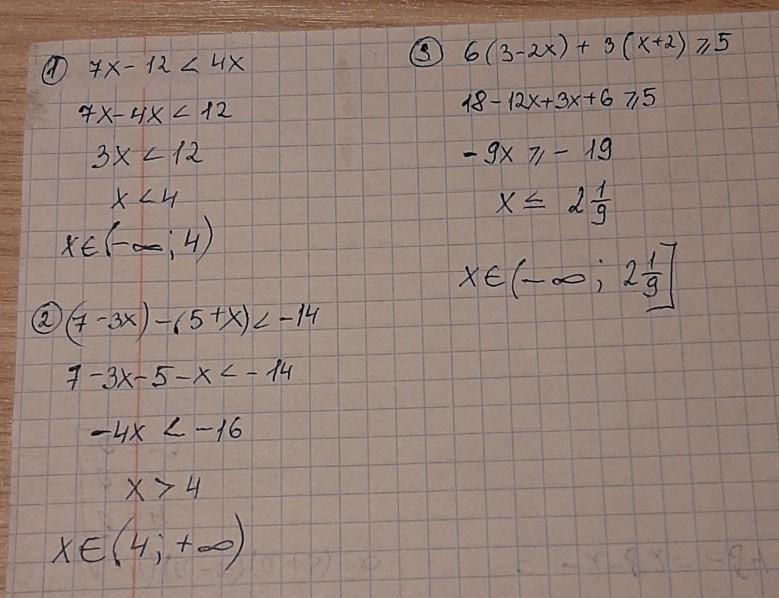 ① 7x - 12 < 4x
7x - 4x < 12
3x < 12
x < 4
x ∈ (-∞; 4)
② (7 - 3x) - (5 + x) < -14
7 - 3x - 5 - x < -14
-4x < -16
x > 4
x ∈ (4; +∞)
③ 6(3 - 2x) + 3(x + 2) ⩾ 5
18 - 12x + 3x + 6 ⩾ 5
-9x ⩾ -19
x ≤ 2 1/9
x ∈ (-∞; 2 1/9]